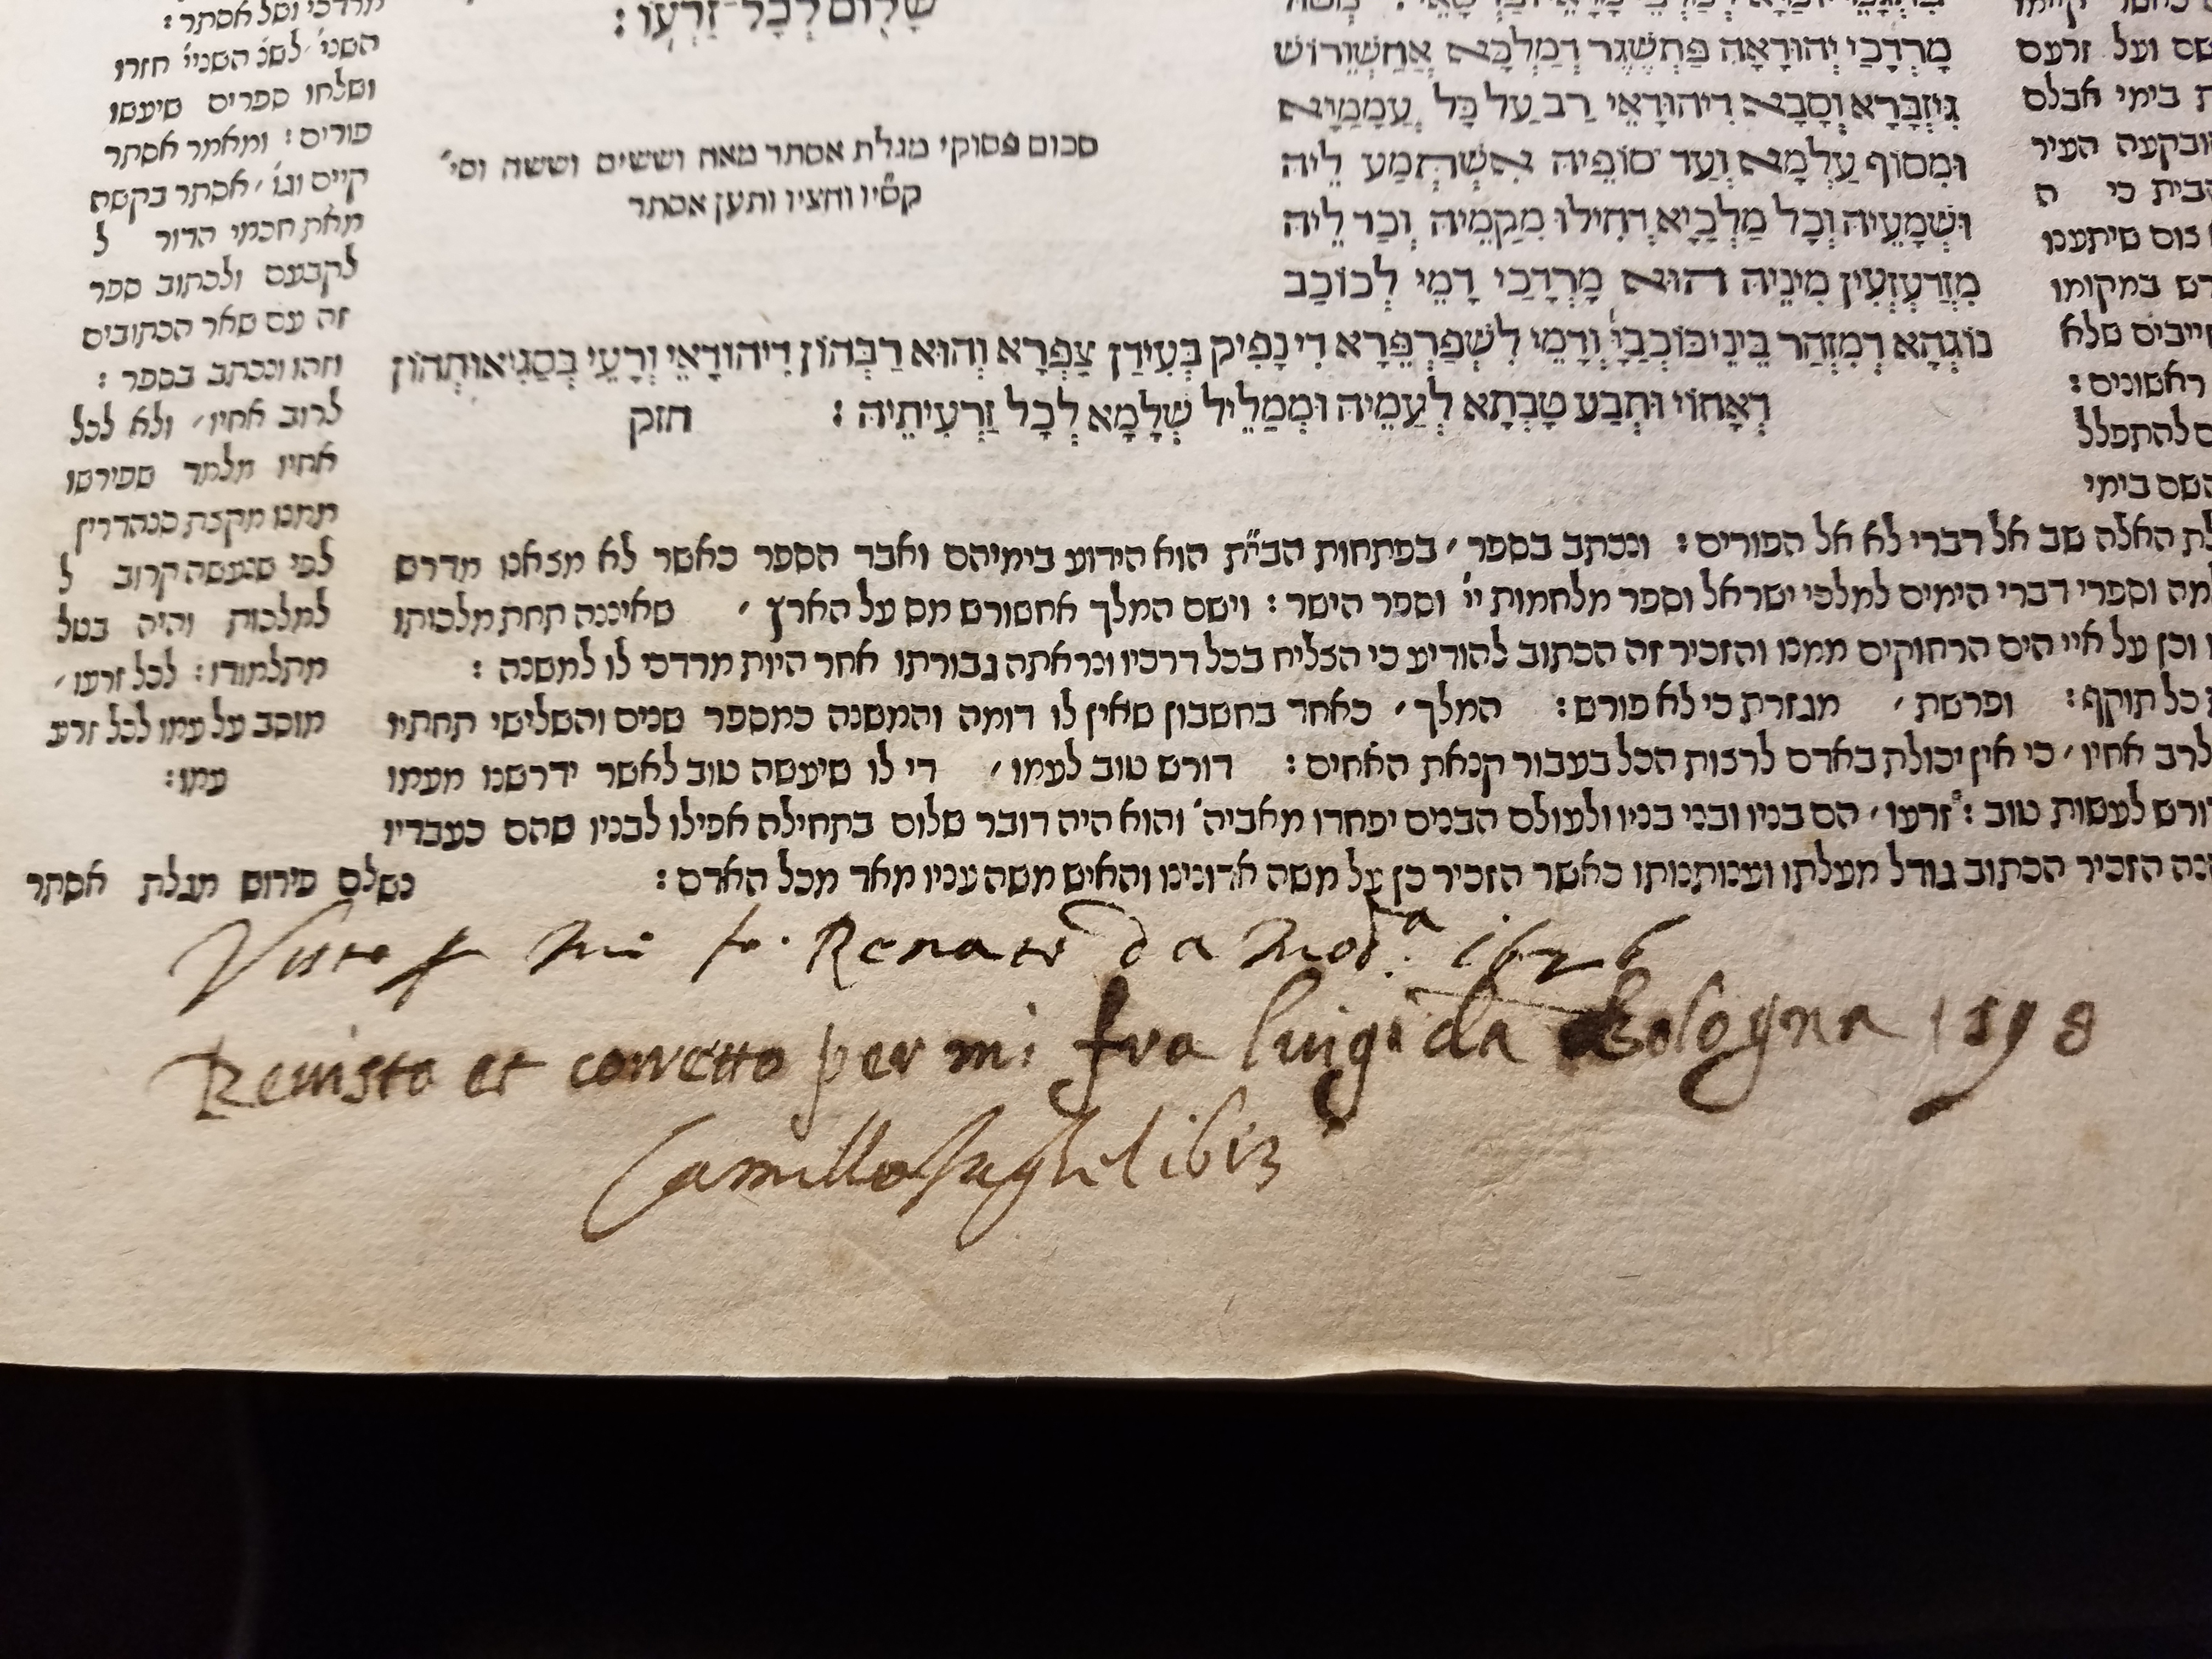 שָׁלוֹם לְכָל־זַרְעוֹ :
סכום פסוקי מגלת אסתר מאה וששים וששה וסי׳
קס״יו וחציו ותען אסתר
מָרְדְּכַי יְהוּדָאָה פַּתְשֶׁגֶר דְמַלְכָּא אֲחַשְׁוֵרוֹשׁ
גִּיזְבָּרָא וְסָבָא דִיהוּדָאֵי רַב עַל כָּל עַמְמַיָא
וּמִסוֹף עַלְמָא וְעַד סוֹפֵיהּ אִשְׁתְּמַע לֵיהּ
וּשְׁמָעֵיהּ וְכָל מַלְכַיָא דְחִילוּ מִקַמֵיהּ וְכַד לֵיהּ
מִזְדַעְזְעִין מִינֵיהּ הוּא מָרְדְכַי דָמֵי לְכוֹכַב
נוֹגְהָא דְמַזְהַר בֵּינֵי כּוֹכְבַיָא וְדָמֵי לִשְׁפַרְפָּרָא דִי נָפִיק בְּעִידַן צַפְרָא וְהוּא רַבְּהוֹן דִיהוּדָאֵי וְרָעֵי בְּסַגִיאוּתְהוֹן
דְאָחוֹי וּתְבַע טָבְתָא לְעַמֵיהּ וּמְמַלֵיל שְׁלָמָא לְכָל זַרְעִיתֵיהּ : חזק
שם ועל זרעם
בימי אבלם
ובקעה העיר
הבית כי ה
צום שיתענו
במקומו
חייבים שלא
ראשונים :
להתפלל
השם בימי
האלה שב אל דברי לא אל הפורים : ונכתב בספר ׳ בפתחות הבי״ת הוא הידוע בימיהם ואבד הספר כאשר לא מצאנו מדרש
וספרי דברי הימים למלכי ישראל וספר מלחמות יי׳ וספר הישר : וישם המלך אחשורש מס על הארץ ׳ שאיננה תחת מלכותו
וכן על איי הים הרחוקים ממנו והזכיר זה הכתוב להודיע כי הצליח בכל דרכיו ונראתה גבורתו אחר היות מרדכי לו למשנה :
כל תוקף : ופרשת ׳ מגזרת כי לא פורש : המלך ׳ כאחד בחשבון שאין לו דומה והמשנה כמספר שנים והשלישי תחתיו
לרב אחיו ׳ כי אין יכולת באדם לרצות הכל בעבור קנאת האחים : דורש טוב לעמו ׳ די לו שיעשה טוב לאשר ידרשנו מעמו
לעשות טוב : זרעו ׳ הם בניו ובני בניו ולעולם הבנים יפחדו מאביה׳ והוא היה דובר שלום בתחילה אפילו לבניו שהם כעבדיו
הזכיר הכתוב גודל מעלתו וענותנותו כאשר הזכיר כן על משה אדונינו והאיש משה עניו מאד מכל האדם :
מרדכי ושל אסתר :
השני׳ לשנ׳ השניי׳ חזרו
ושלחו ספרים שיעשו
פורים : ומאמר אסתר
קיים וגו׳ ׳ אסתר בקשה
מאת חכמי הדור ל
לקבעם ולכתוב ספר
זה עם שאר הכתובים
וזהו ונכתב בספר :
לרוב אחיו ׳ ולא לכל
אחיו מלמד שפירשו
ממנו מקצת סנהדרין
לפי שנעשה קרוב ל
למלכות והיה בטל
מתלמודו : לכל זרעו ׳
מוסב על עמו לכל זרע
עמו :
נשלם פירוש מגלת אסתר
Visto p mi fr. Renato da Mod.ª 1626
Revisto et corretto per mi fra Luigi da Bologna 1598
Camillo Jaghel 1613